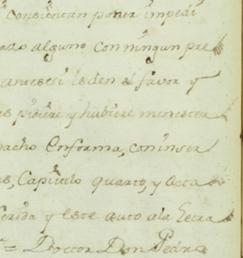 consientan poner impedi
alguno con ningun pre
antes si le den el favor y
pidiere y hubiere menester
pacho Conforma, con inser
Capitulo quarto, y Acta
ferida y este auto a la Letra
Doctor Don Pedro